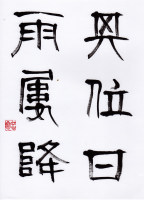 位日
雨屢降